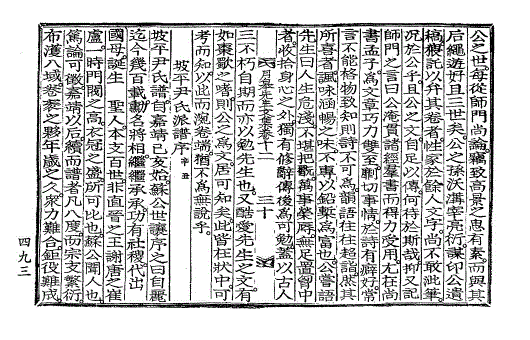 公之世每從師門尙論竊致高景之忠有素而與其
后繩遊好且三世矣公之孫沃溝宰亮衍謀印公遺
稿猥託以弁其卷者性家於餘人文字尙不敢泚筆
况於公乎且公之文自足以傳何待於斯哉抑又記
師門之言曰公淹貫諸經羣書而得力受用尤在尙
書孟子爲文章巧力雙至剴切事情於詩有癖好常
言不能格物致知則詩不可爲韻語往往超詣然其
所喜者諷咏涵暢之味不專以鉛槧爲富也公嘗語
先生曰人生危淺不堪把翫萬事榮辱無足置胷中
者收拾身心之外獨有修辭傳後爲可勉蓋以古人
先生文集卷十二 三十
三不朽自期而亦以勉先生也又酷愛先生之文有
如棗歜之嗜則公之爲文居可知矣此皆在狀中可
考而知以此而溷卷端猶不爲無說乎
坡平尹氏派譜序 辛丑
坡平尹氏譜自嘉靖己亥始蘇公世讓序之曰自麗
迄今幾百載勳名將相繼繼承承功有社稷代出
國母誕生 聖人本支百世非直晉之王謝唐之崔
盧一時門閥之高衣冠之盛所可比也蘇公聞人也
篤論可徵嘉靖以后續而譜者凡八度而宗支繁衍
布濩八域卷袠之夥年歲之久衆力難合鉅役難成
四九三